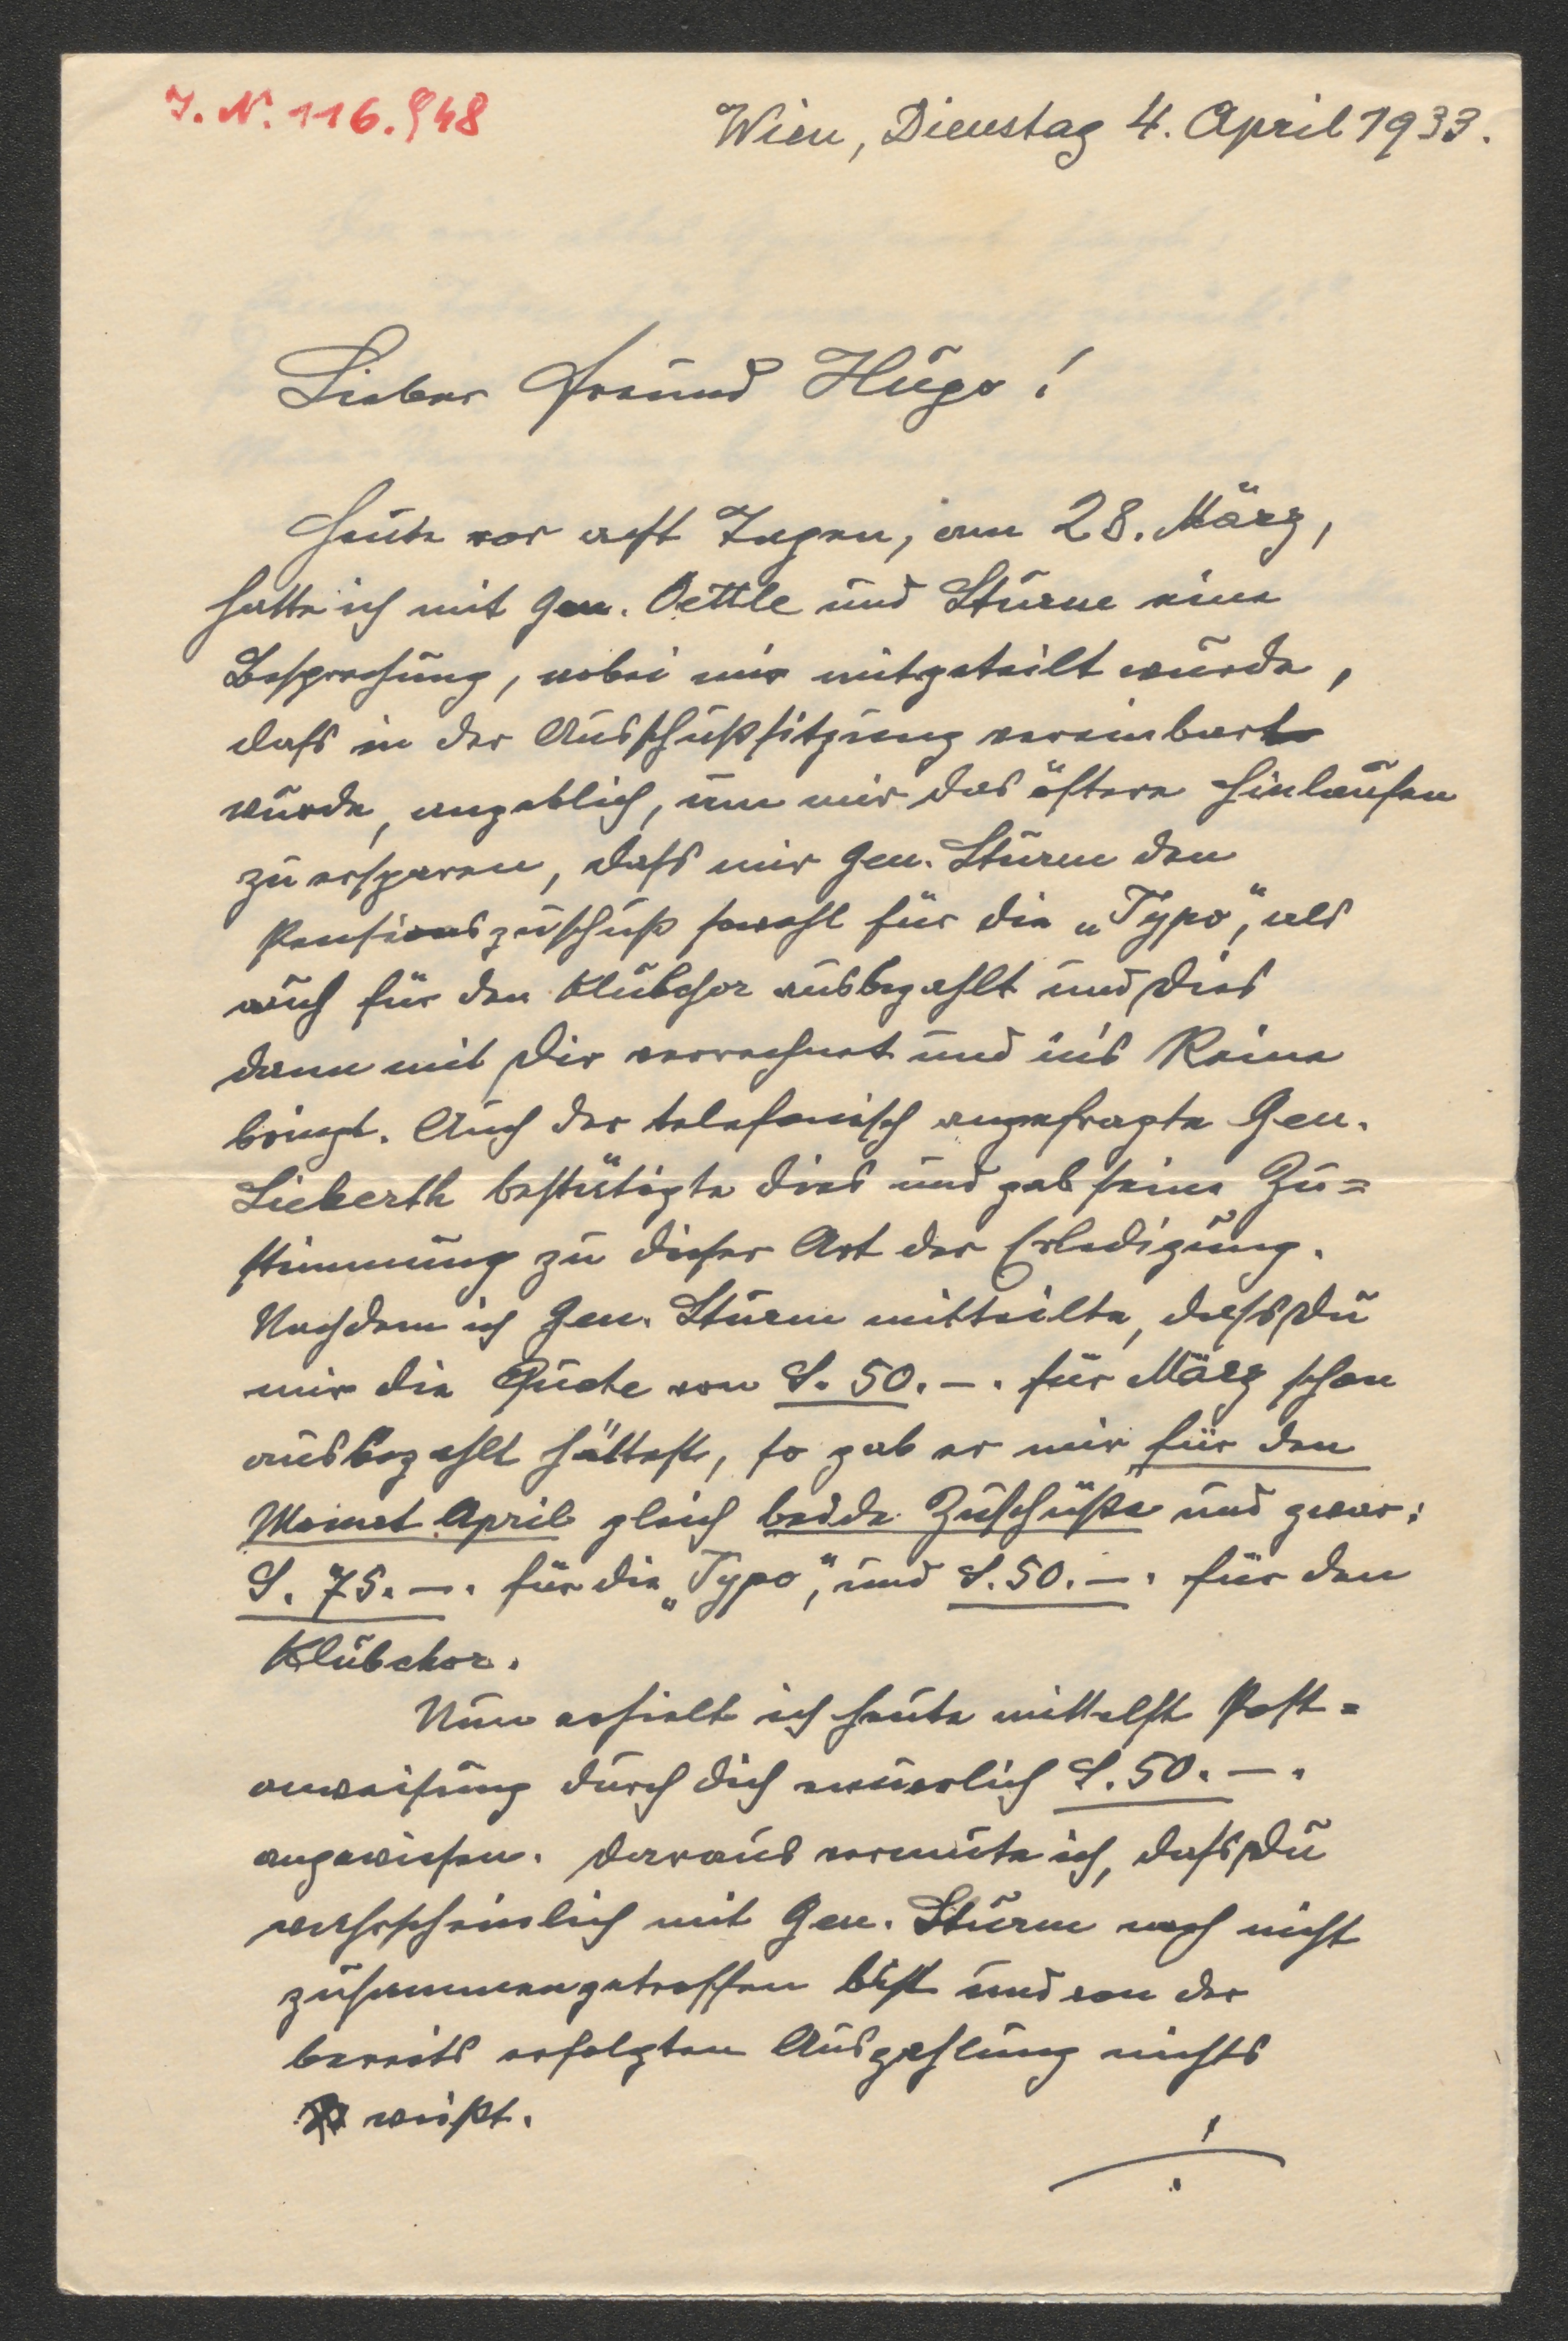 J. N. 116.948
Wien, Dienstag 4. April 1933.
Lieber Freund Hugo!
Heute vor acht Tagen, am 28. März,
hatte ich mit Gen. Oettle und Sturm eine
Besprechung, wobei mir mitgeteilt wurde,
daß in der Ausschußsitzung vereinbart
wurde, angeblich, um mir das öftere Hinlaufen
zu ersparen, daß mir Gen. Sturm den
Pensionszuschuß sowohl für die „Typo“, als
auch für den Klubchor ausbezahlt und dies
dann mit Dir verrechnet und in's Reine
bringt. Auch der telefonisch angefragte Gen.
Lieberth bestätigte dies und gab seine Zu=
stimmung zu dieser Art der Erledigung.
Nachdem ich Gen. Sturm mitteilte, daß Du
mir die Quote von S. 50.–. für März schon
ausbezahlt hättest, so gab er mir für den
Monat April gleich beide Zuschüße und zwar:
S. 75.–. für die „Typo“, und S. 50.–. für den
Klubchor.
Nun erhielt ich heute mittelst Post=
anweisung durch Dich neuerlich S. 50.–.
angewiesen. Daraus vermute ich, daß Du
wahrscheinlich mit Gen. Sturm noch nicht
zusammengetroffen bist und von der
bereits erfolgten Auszahlung nichts
weißt.